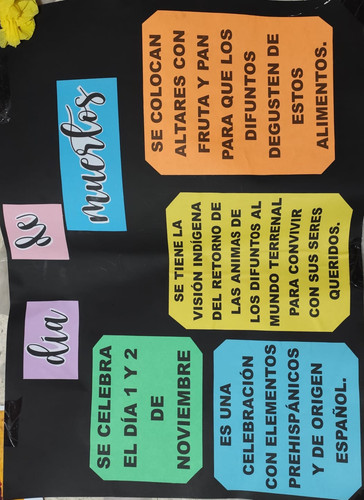 día
de
muertos
SE CELEBRA
EL DÍA 1 Y 2
DE
NOVIEMBRE
SE TIENE LA
VISIÓN INDÍGENA
DEL RETORNO DE
LAS ANIMAS DE
LOS DIFUNTOS AL
MUNDO TERRENAL
PARA CONVIVIR
CON SUS SERES
QUERIDOS.
SE COLOCAN
ALTARES CON
FRUTA Y PAN
PARA QUE LOS
DIFUNTOS
DEGUSTEN DE
ESTOS
ALIMENTOS.
ES UNA
CELEBRACIÓN
CON ELEMENTOS
PREHISPÁNICOS
Y DE ORIGEN
ESPAÑOL.